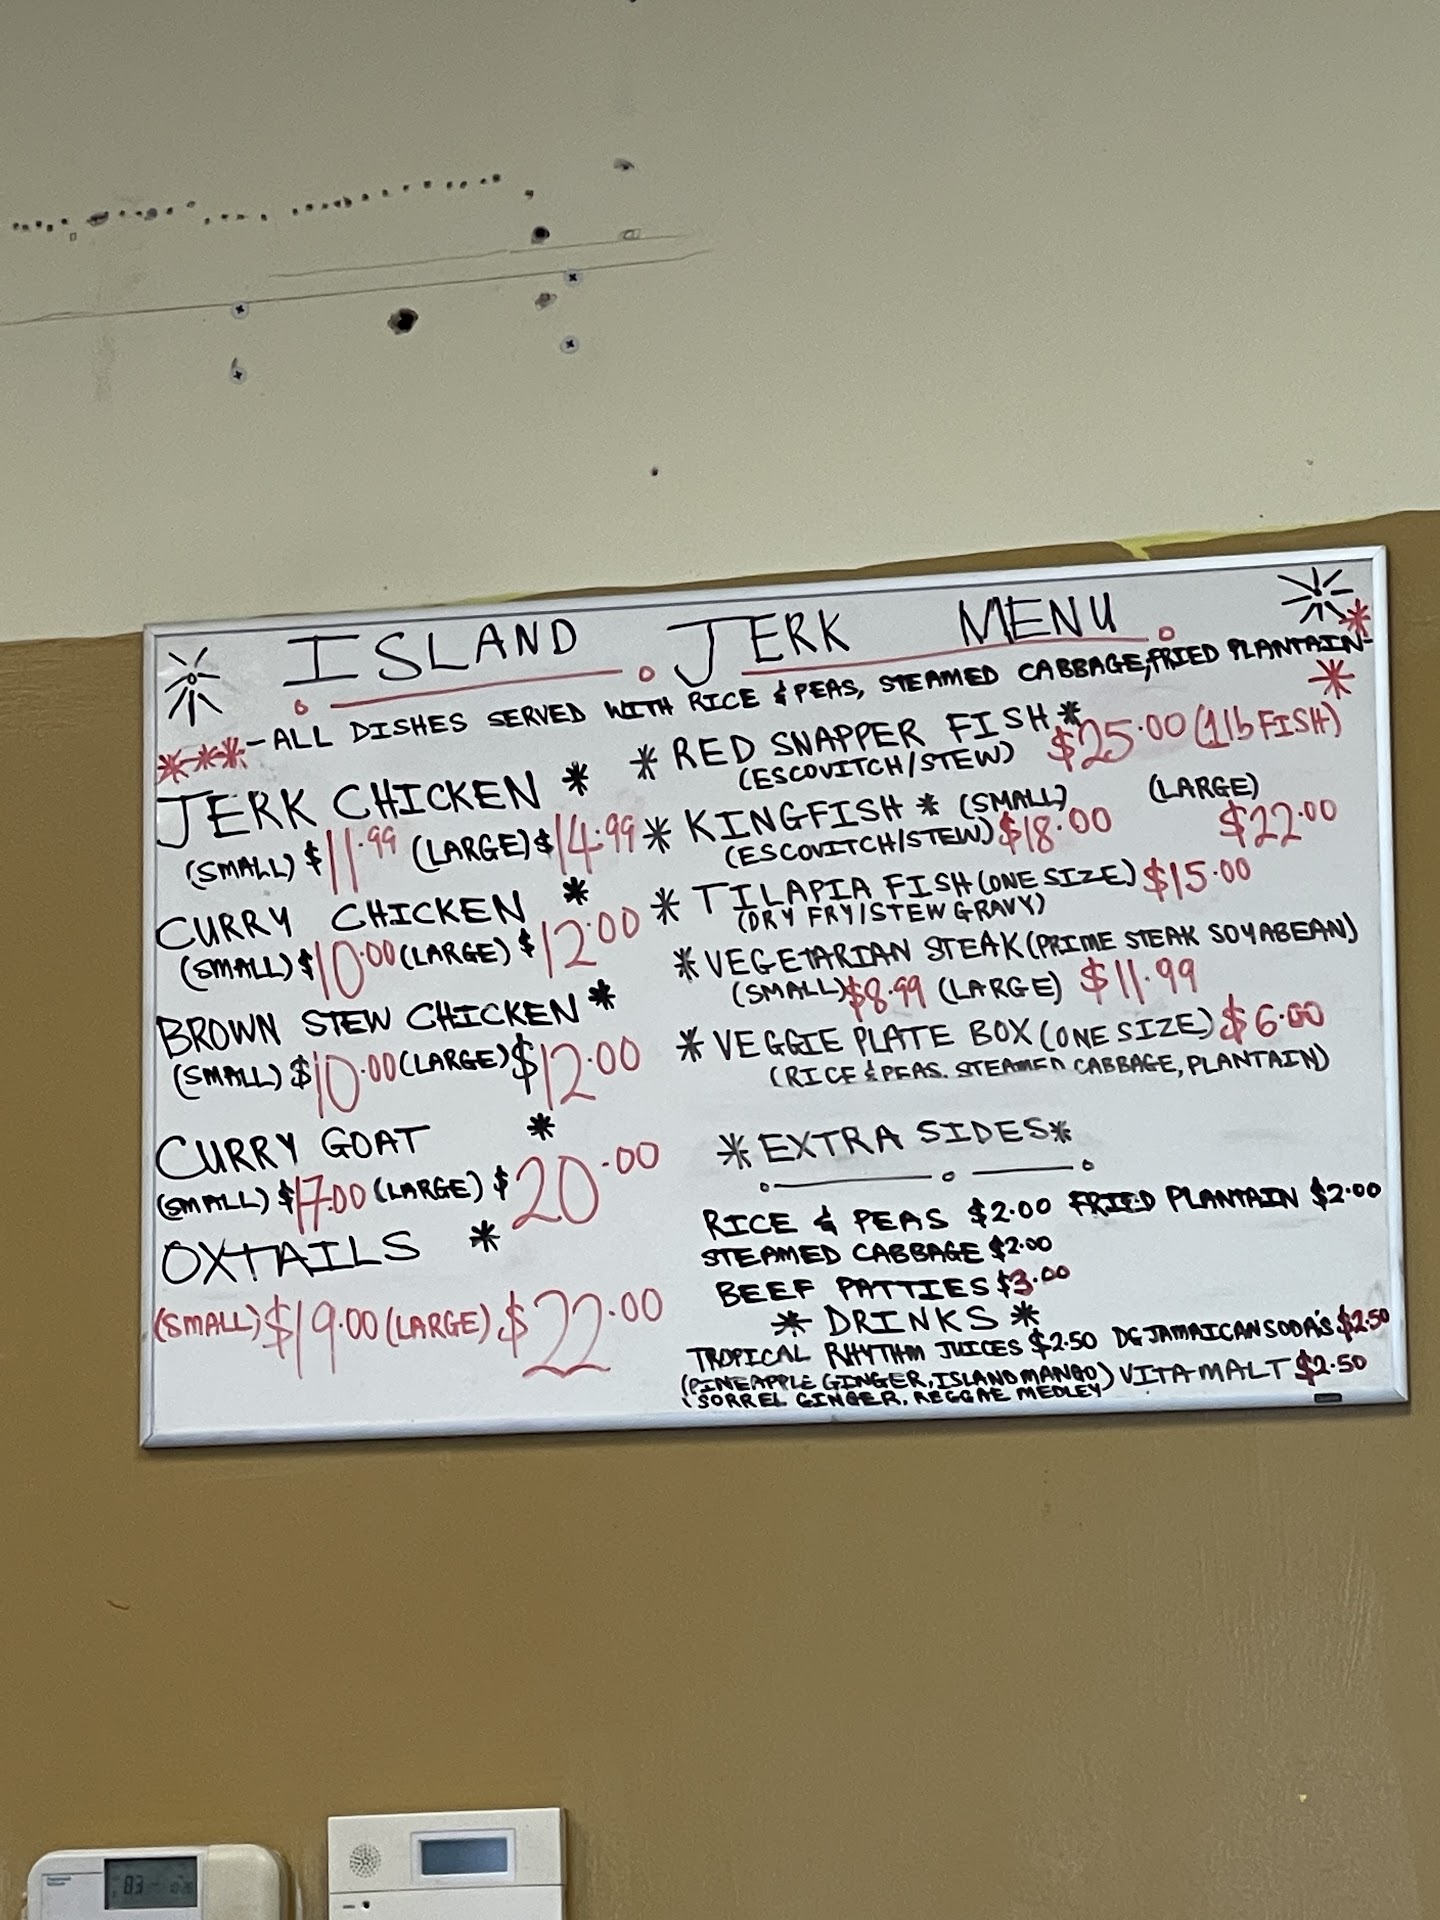 ISLAND JERK MENU
-ALL DISHES SERVED WITH RICE & PEAS, STEAMED CABBAGE, FRIED PLANTAIN-
JERK CHICKEN *
(SMALL) $11.99 (LARGE) $14.99
CURRY CHICKEN *
(SMALL) $10.00 (LARGE) $12.00
BROWN STEW CHICKEN *
(SMALL) $10.00 (LARGE) $12.00
CURRY GOAT *
(SMALL) $17.00 (LARGE) $20.00
OXTAILS *
(SMALL) $19.00 (LARGE) $22.00
* RED SNAPPER FISH * $25.00 (1lb FISH)
(ESCOVITCH/STEW)
* KINGFISH * (SMALL) $18.00 (LARGE) $22.00
(ESCOVITCH/STEW)
* TILAPIA FISH (ONE SIZE) $15.00
(DRY FRY/STEW GRAVY)
* VEGETARIAN STEAK (PRIME STEAK SOYABEAN)
(SMALL) $8.99 (LARGE) $11.99
* VEGGIE PLATE BOX (ONE SIZE) $6.00
(RICE & PEAS, STEAMED CABBAGE, PLANTAIN)
* EXTRA SIDES *
RICE & PEAS $2.00 FRIED PLANTAIN $2.00
STEAMED CABBAGE $2.00
BEEF PATTIES $3.00
* DRINKS *
TROPICAL RHYTHM JUICES $2.50 DG JAMAICAN SODA'S $2.50
(PINEAPPLE GINGER, ISLAND MANGO) VITA MALT $2.50
(SORREL GINGER, REGGAE MEDLEY)